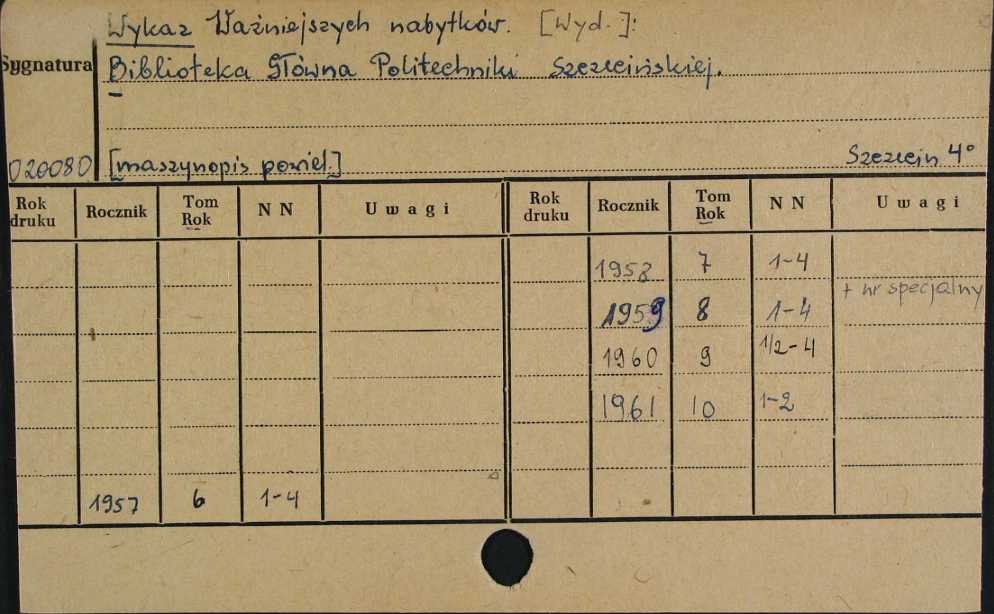 Wykaz Ważniejszych nabytków. [Wyd.]:
Sygnatura Biblioteka Główna Politechniki Szczecińskiej.
020080 [maszynopis powiel.] Szczecin 4°
Rok druku Rocznik Tom Rok N N Uwagi Rok druku Rocznik Tom Rok N N Uwagi
1958 7 1-4
+ nr specjalny
1959 8 1-4
1960 9 1/2-4
1961 10 1-2
1957 6 1-4